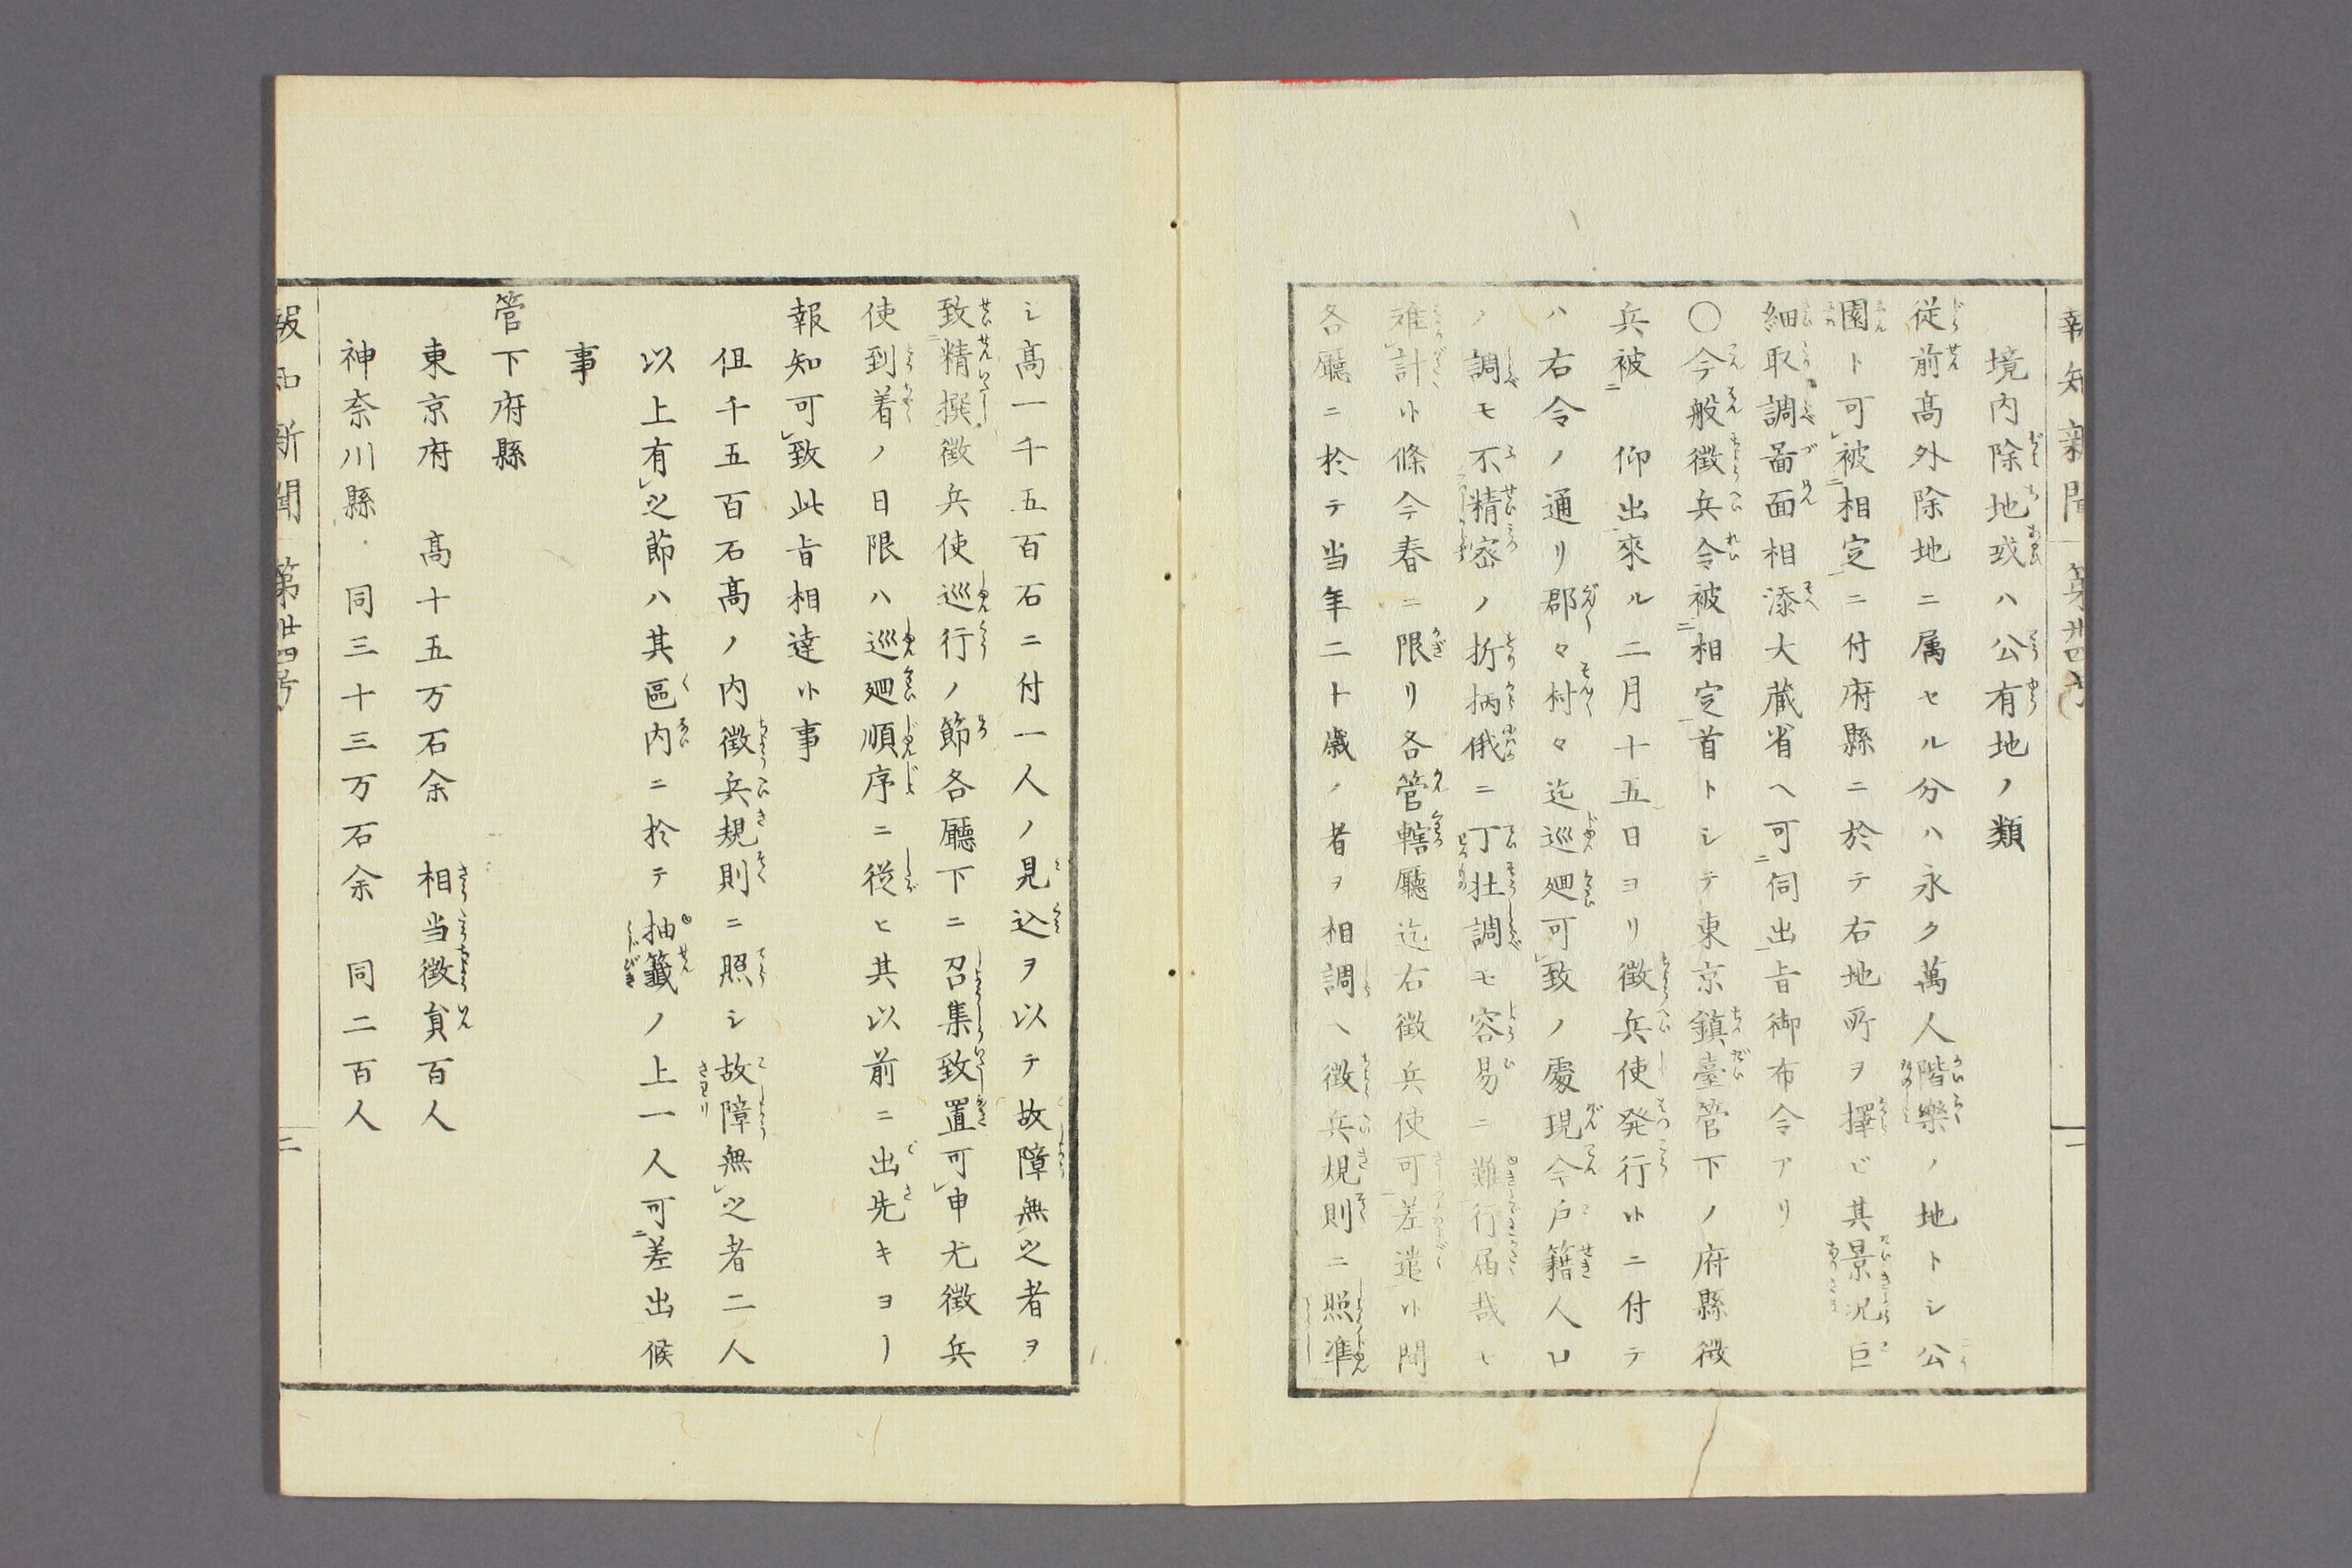 報知新聞 第卅四号
境内除地或ハ公有地ノ類
従前高外除地ニ属セル分ハ永ク萬人階樂ノ地トシ公
園ト可被相定ニ付府縣ニ於テ右地所ヲ擇ビ其景况巨
細取調畵面相添大藏省ヘ可伺出旨御布令アリ
〇今般徴兵令被相定首トシテ東京鎮臺管下ノ府縣徴
兵被 仰出來ル二月十五日ヨリ徴兵使発行候ニ付テ
ハ右令ノ通リ郡々村々迄巡廻可致ノ處現今戸籍人口
ノ調モ不精密ノ折柄俄ニ丁壮調モ容易ニ難行届哉モ
難計候條今春ニ限リ各管轄廳迄右徴兵使可差遣候間
各廳ニ於テ当年二十歳ノ者ヲ相調ヘ徴兵規則ニ照準
シ高一千五百石ニ付一人ノ見込ヲ以テ故障無之者ヲ
致精撰徴兵使巡行ノ節各廳下ニ召集致置可申尤徴兵
使到着ノ日限ハ巡廻順序ニ従ヒ其以前ニ出先キヨリ
報知可致此旨相達候事
但千五百石高ノ内徴兵規則ニ照シ故障無之者二人
以上有之節ハ其區内ニ於テ抽籤ノ上一人可差出候
事
管下府縣
東京府 高十五万石余 相当徴員百人
神奈川縣 同三十三万石余 同二百人
報知新聞 第卅四号 二